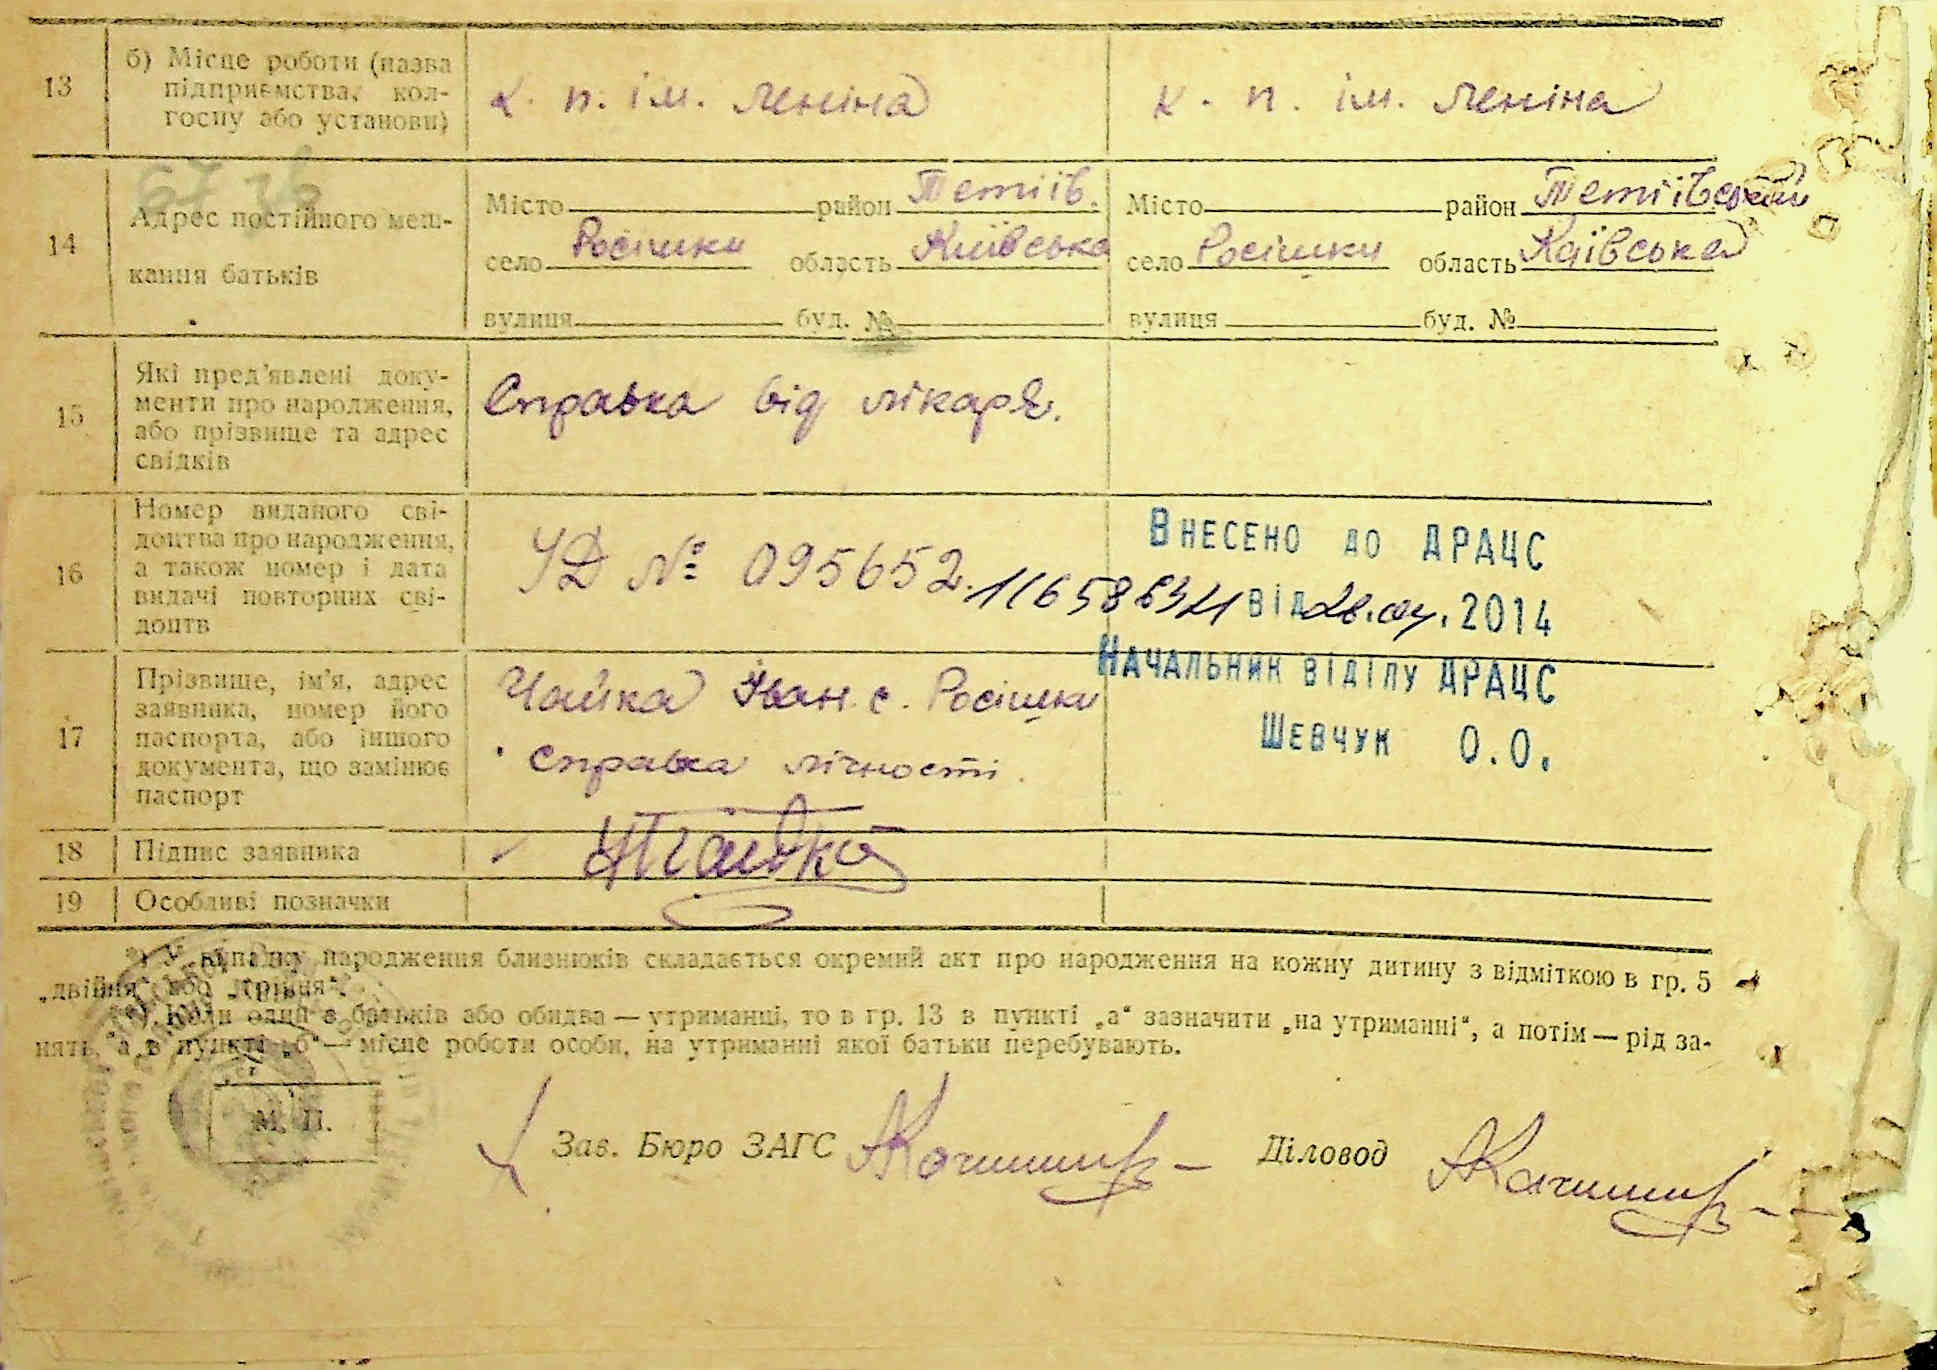 13
б) Місце роботи (назва
підприємства, кол-
госпу або установи)
к. п. ім. Леніна
к. п. ім. Леніна
67 зв
14
Адрес постійного меш-
кання батьків
Місто район Тетіїв.
село Росішки область Київська
вулиця буд. №
Місто район Тетіївський
село Росішки область Київська
вулиця буд. №
15
Які пред’явлені доку-
менти про народження,
або прізвище та адрес
свідків
Справка від лікаря.
16
Номер виданого сві-
доцтва про народження,
а також номер і дата
видачі повторних сві-
доцтв
УД № 095652.
Внесено до ДРАЦС
від 2014
Начальник відділу ДРАЦС
Шевчук О.О.
17
Прізвище, ім’я, адрес
заявника, номер його
паспорта, або іншого
документа, що замінює
паспорт
Чайка Іван с. Росішки
Справка лічності.
18
Підпис заявника
19
Особливі позначки
*) У випадку народження близнюків складається окремий акт про народження на кожну дитину з відміткою в гр. 5
„двійня“ або „трійня“.
Коли один з батьків або обидва — утриманці, то в гр. 13 в пункті „а“ зазначити „на утриманні“, а потім — рід за-
нять, а в пункті „б“ — місце роботи особи, на утриманні якої батьки перебувають.
М. П.
Зав. Бюро ЗАГС
Діловод